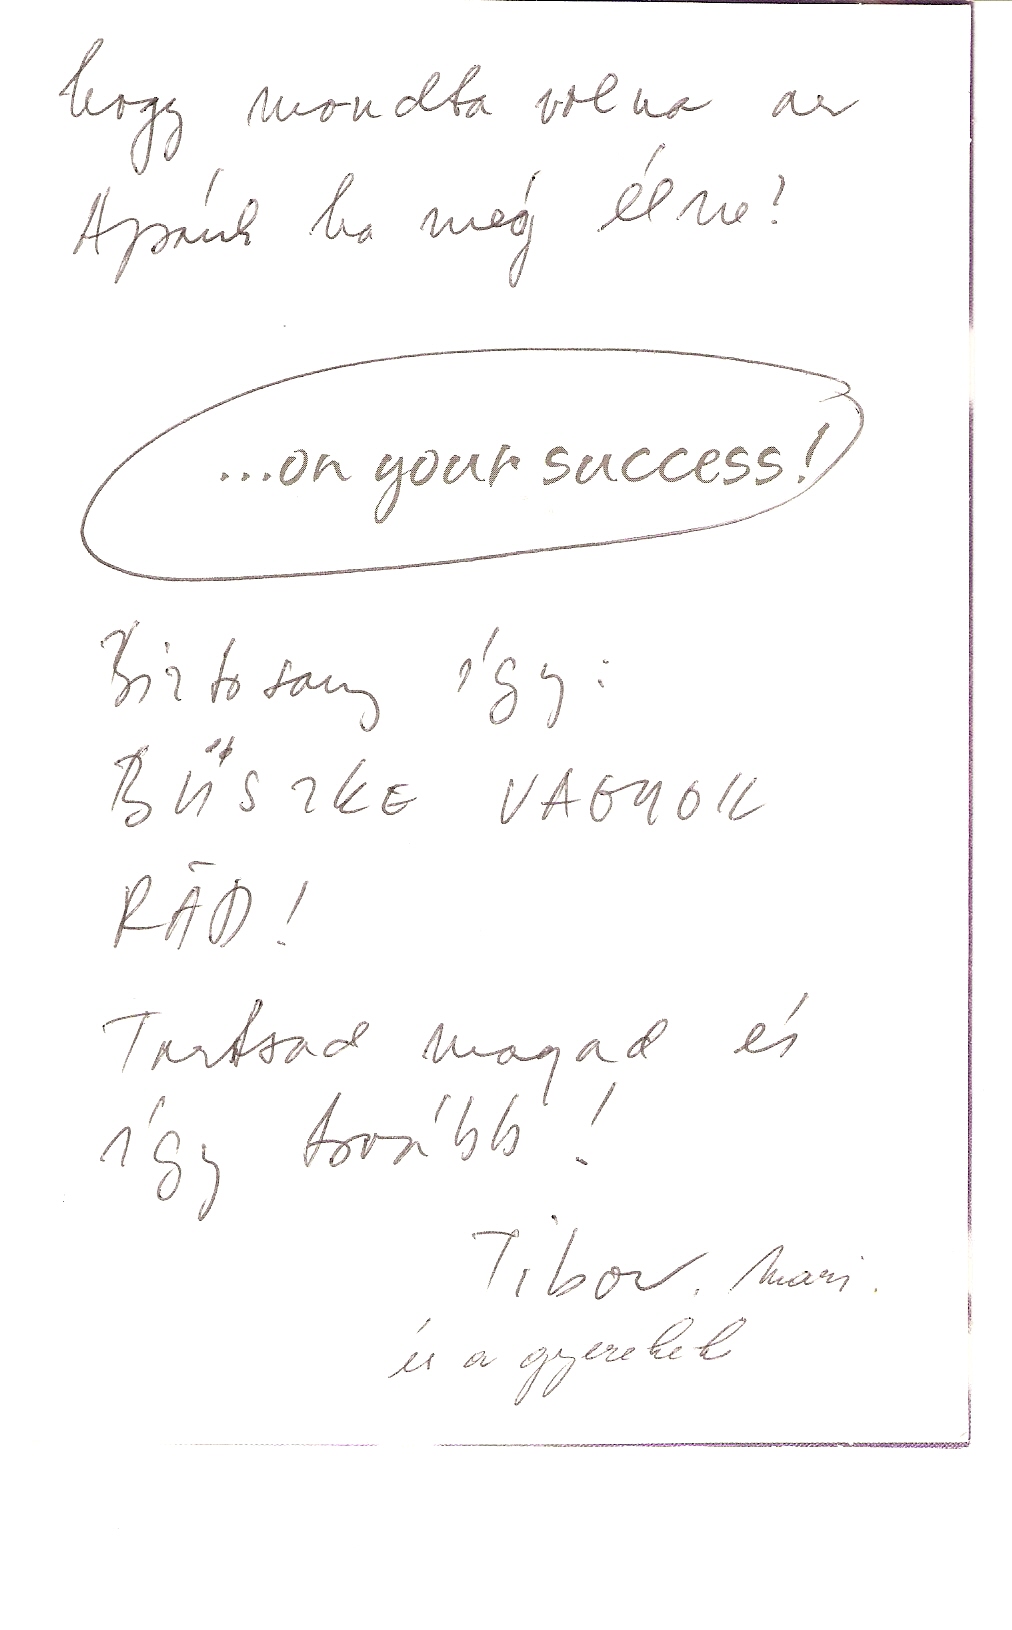 hogy mondta volna az
Apánk ha még élne!
...on your success!
Biztosany így:
BÜSZKE VAGYOK
RÁD!
Tartsad magad és
így tovább!
Tibor. Mari.
és a gyerekek